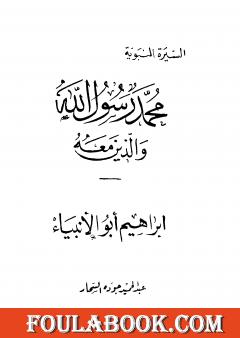 السيرة النبوية
محمد رسول الله
والذين معه
ابراهيم أبو الأنبياء
عبد الحميد جوده السحار
FOULABOOK.COM